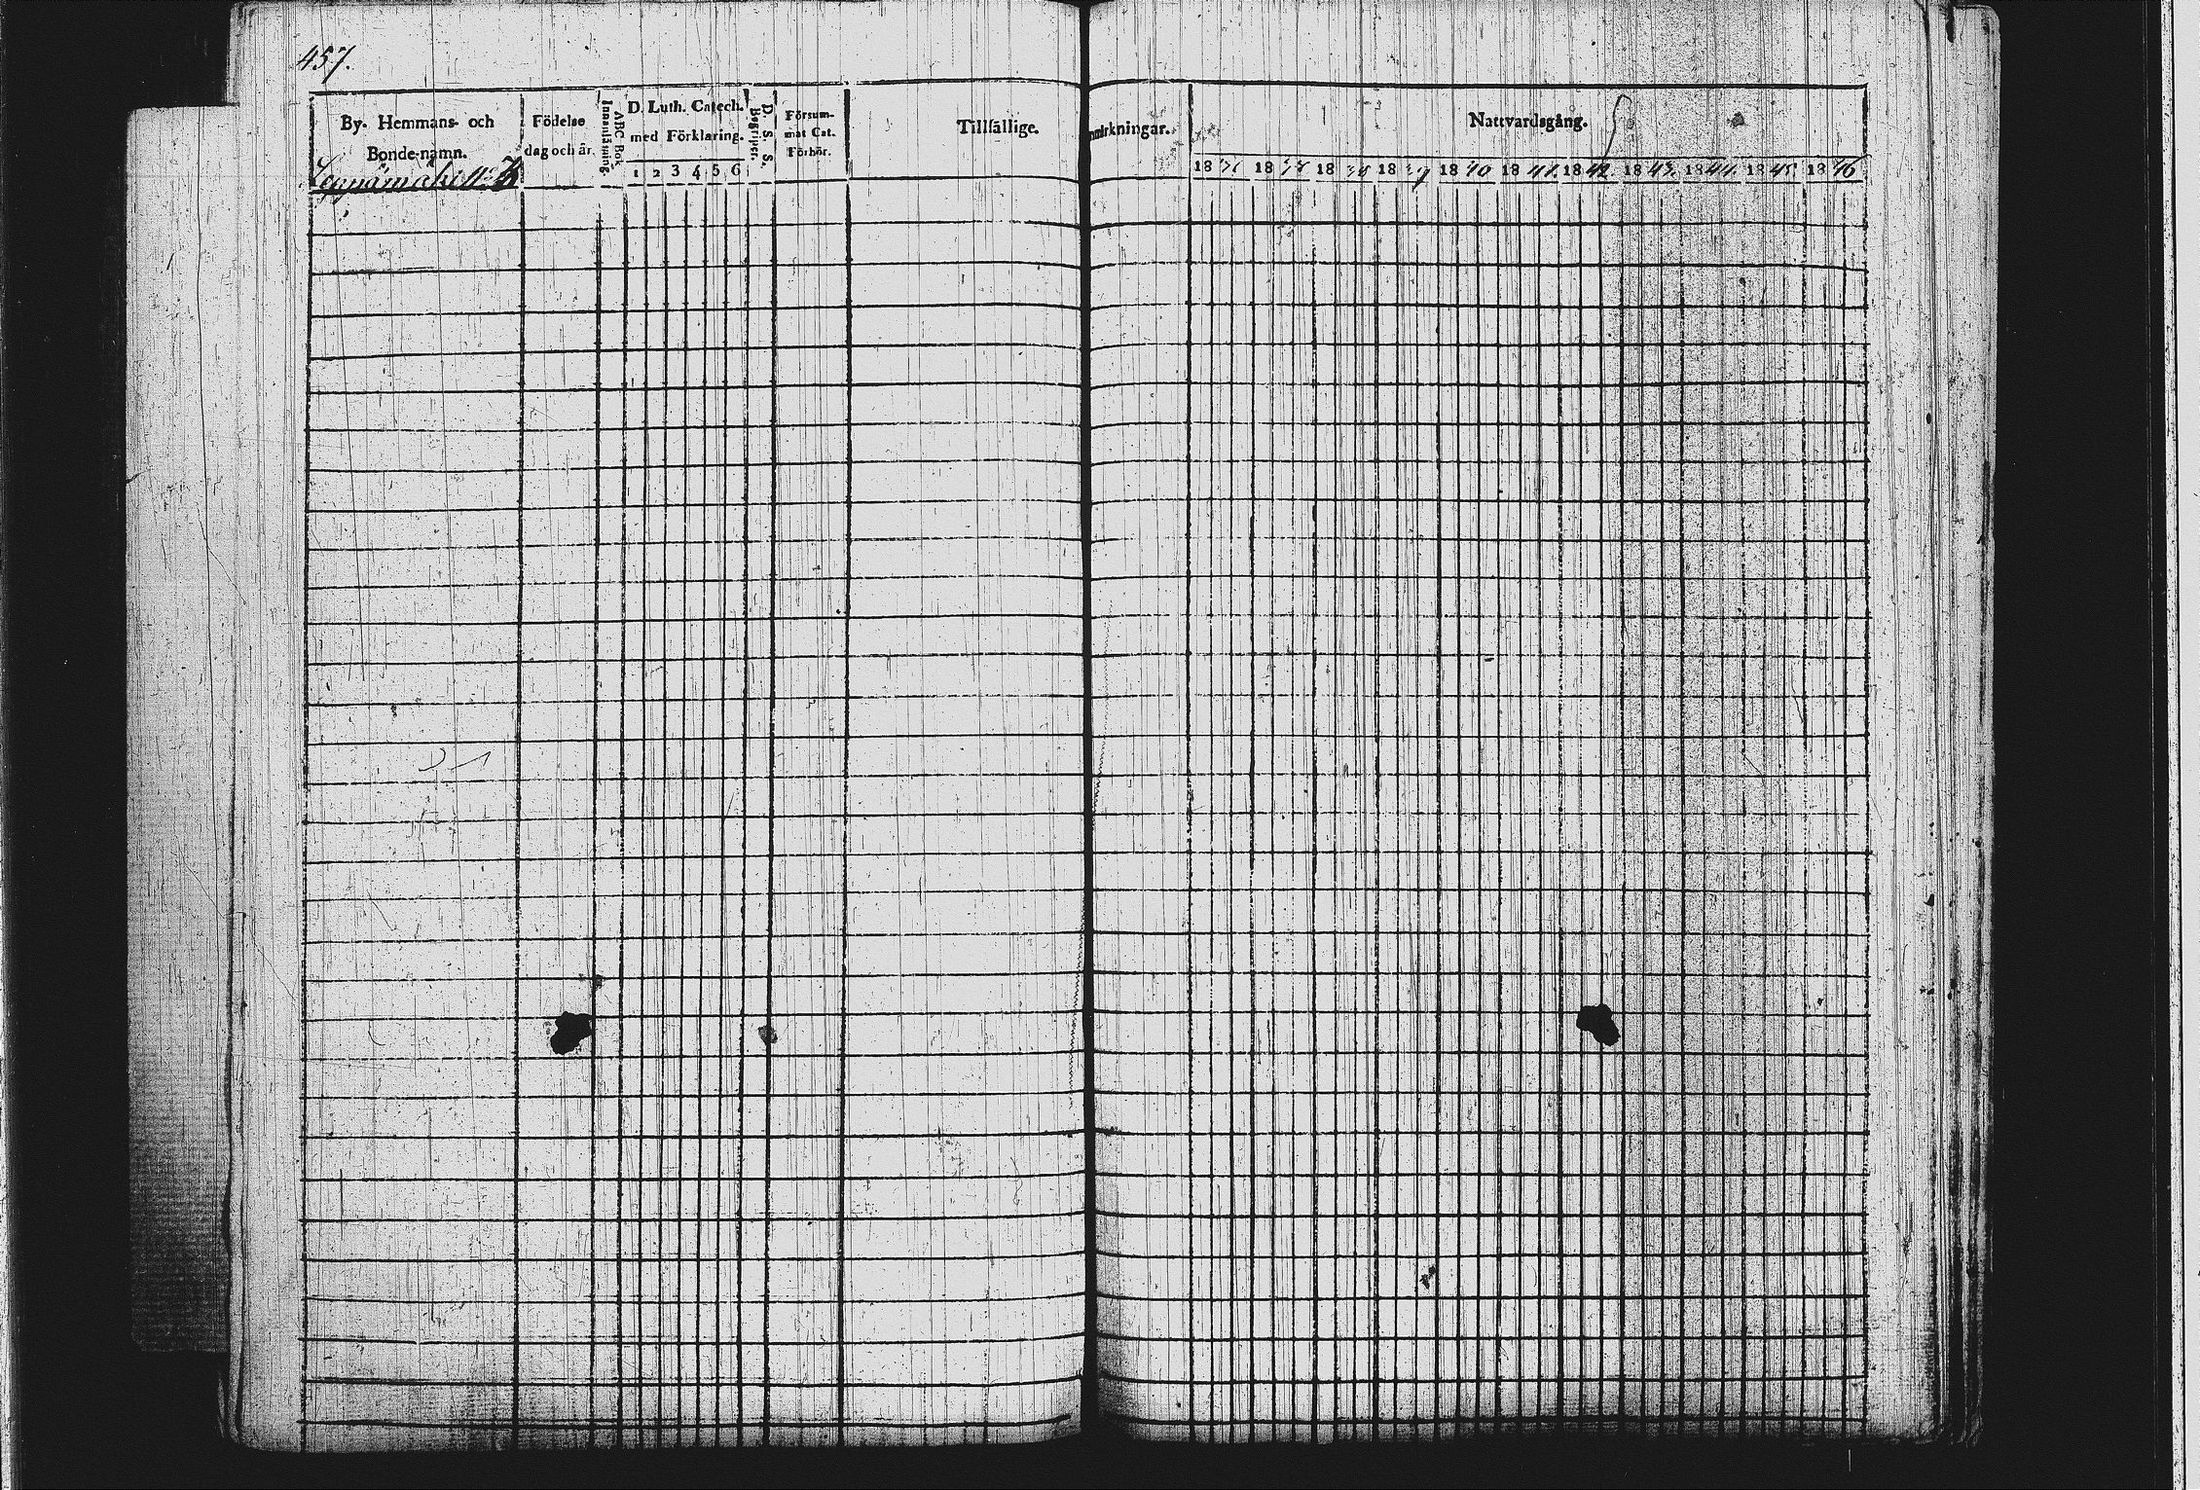 457.
By. Hemmans- och
Bonde-namn.
Födelse
dag och år.
ABC Bok
Innanläsning
D. Luth. Catech.
med Förklaring.
1 2 3 4 5 6
D. S. S.
Begriper.
Försum-
mat Cat.
Förhör.
Tillfällige. Anmärkningar.
Nattvardsgång.
18 18 18 38 18 39 18 40 18 41. 18 42. 18 43. 18 44. 18 45. 18 46